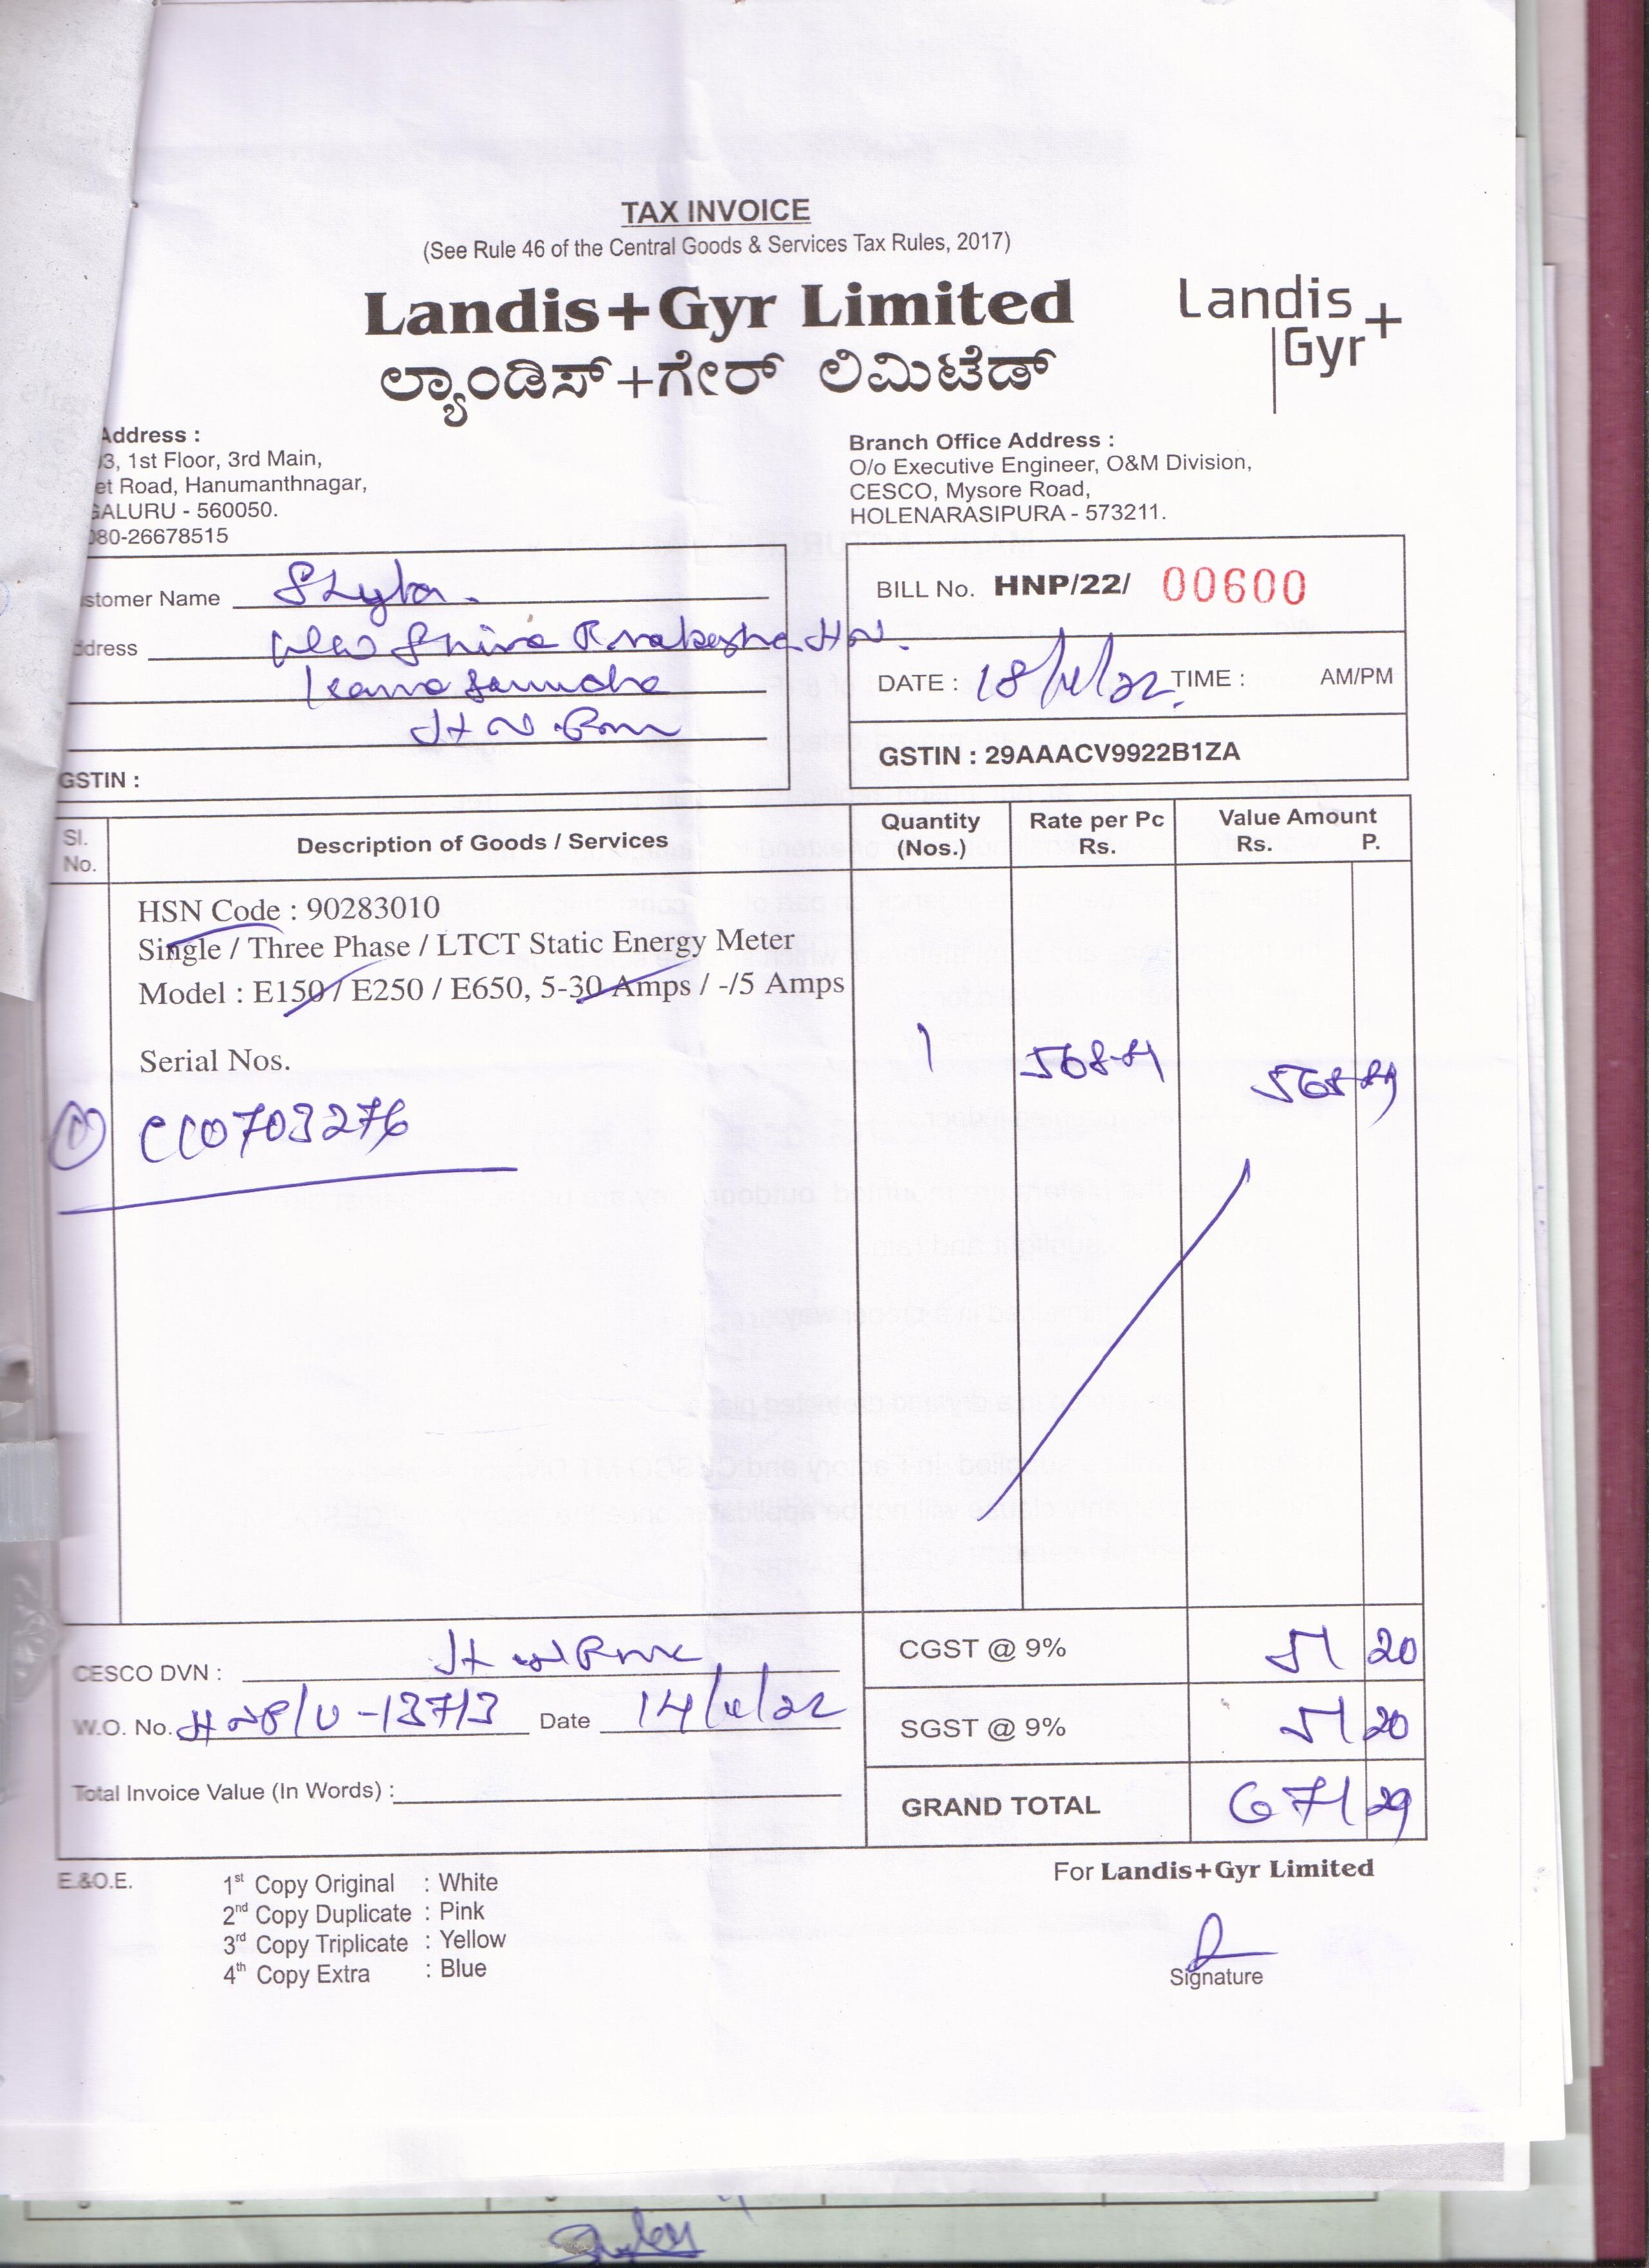 TAX INVOICE
(See Rule 46 of the Central Goods & Services Tax Rules, 2017)
Landis+Gyr Limited
Landis
Gyr+
ಲ್ಯಾಂಡಿಸ್+ಗೇರ್ ಲಿಮಿಟೆಡ್
Address :
3, 1st Floor, 3rd Main,
et Road, Hanumanthnagar,
GALURU - 560050.
080-26678515
Branch Office Address :
O/o Executive Engineer, O&M Division,
CESCO, Mysore Road,
HOLENARASIPURA - 573211.
stomer Name
ddress
H N
GSTIN :
BILL No. HNP/22/ 00600
DATE : 18/ /22 TIME : AM/PM
GSTIN : 29AAACV9922B1ZA
Sl. No. Description of Goods / Services Quantity (Nos.) Rate per Pc Rs. Value Amount Rs. P.
HSN Code : 90283010
Single / Three Phase / LTCT Static Energy Meter
Model : E150 / E250 / E650, 5-30 Amps / -/5 Amps
Serial Nos. 1 568-89 568 89
1 CC0703276
CESCO DVN :
CGST @ 9% 51 20
W.O. No. Date 14/ /22
SGST @ 9% 51 20
Total Invoice Value (In Words) :
GRAND TOTAL 671 29
E.&O.E.
1st Copy Original : White
2nd Copy Duplicate : Pink
3rd Copy Triplicate : Yellow
4th Copy Extra : Blue
For Landis+Gyr Limited
Signature